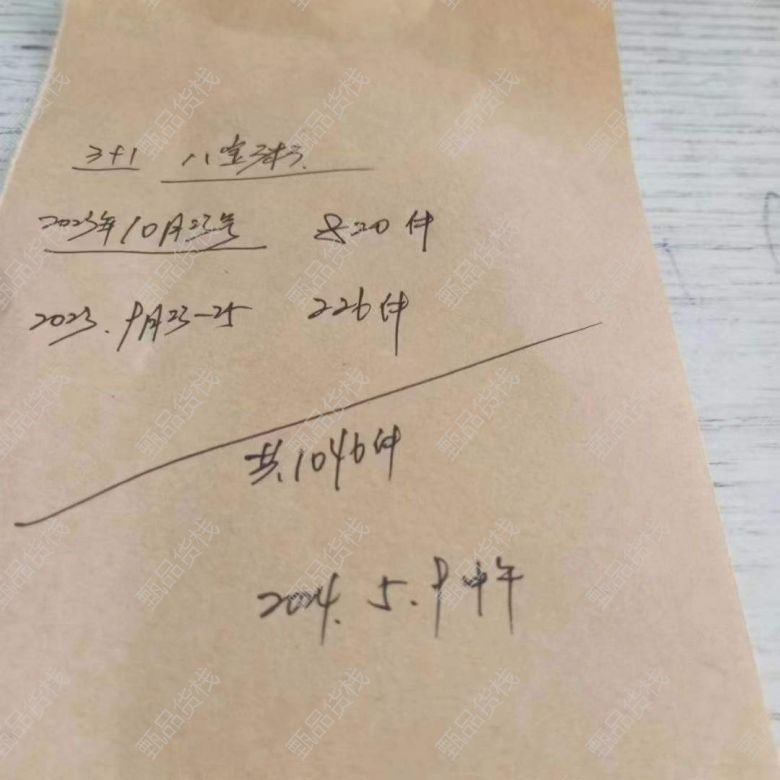 3+1 八宝粥
2023年10月23号 820件
2023.9月23-25 226件
共1046件
2024.5.9中午
甄品货栈